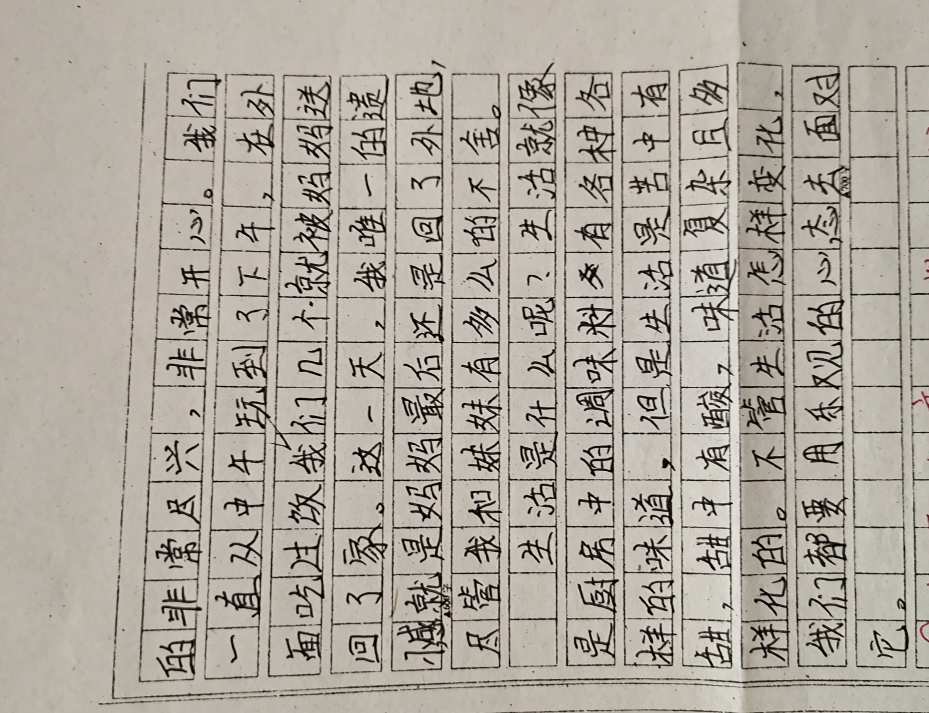 的非常尽兴，非常开心。我们
一直从中午玩到了下午，在外
面吃过饭我们几个就被妈妈送
回了家。这一天，我唯一的遗
憾就是妈妈最后还是回了外地，
尽管我和妹妹有多么的不舍。
生活是什么呢？生活就像
是厨房中的调味料有各种各
样的味道。但是生活是苦中有
甜，甜中有酸，味道复杂且多
样化的。不管生活怎样变化，
我们都要用乐观的心态去面对
它。